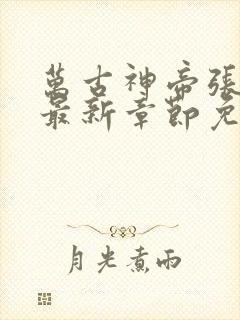 萬古神帝張
最新章節免
月光煮雨